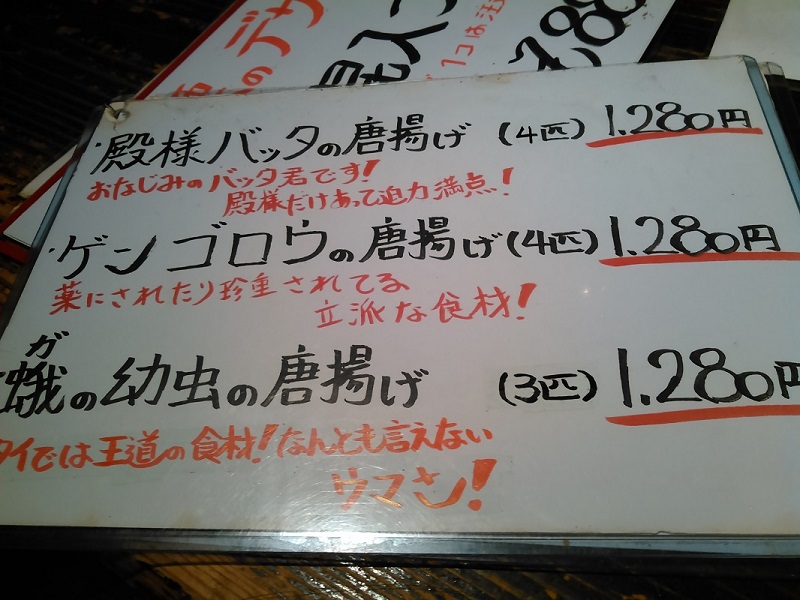 のデザ
・殿様バッタの唐揚げ (4匹) 1.280円
おなじみのバッタ君です!
殿様だけあって迫力満点!
・ゲンゴロウの唐揚げ(4匹) 1.280円
薬にされたり珍重されてる
立派な食材!
ガ
・蛾の幼虫の唐揚げ (3匹) 1.280円
タイでは王道の食材!なんとも言えない
ウマさ!